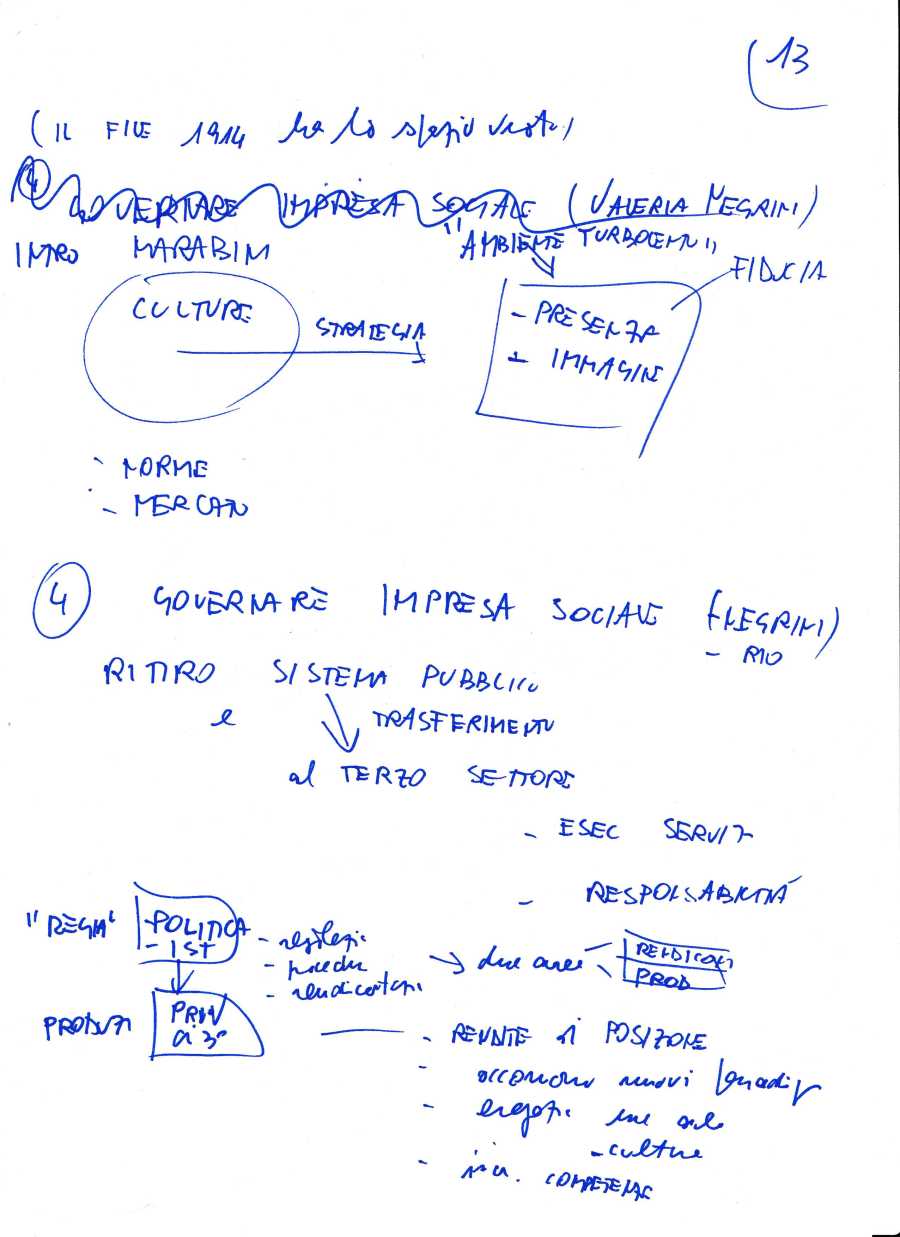 13
(IL FILE 1914 ha lo spazio vuoto)
4
GOVERNARE IMPRESA SOCIALE (VALERIA NEGRINI)
INTRO MARABINI
"AMBIENTE
FIDUCIA
CULTURE
STRATEGIA
- PRESENZA
- IMMAGINE
- NORME
- MERCATO
4 GOVERNARE IMPRESA SOCIALE (NEGRINI)
- RIO
RITIRO SISTEMA PUBBLICO
e TRASFERIMENTO
al TERZO SETTORE
- ESEC SERVIZ
- RESPONSABILITÀ
"REGIA" - POLITICA
- IST
-
- procedure
- rendicontazi
→ due aree
RENDICONT
PROD
PRODUZI PRIV
a 3°
- RENDITE di POSIZIONE
- occorrono nuovi
-
- culture
- COMPETENZE